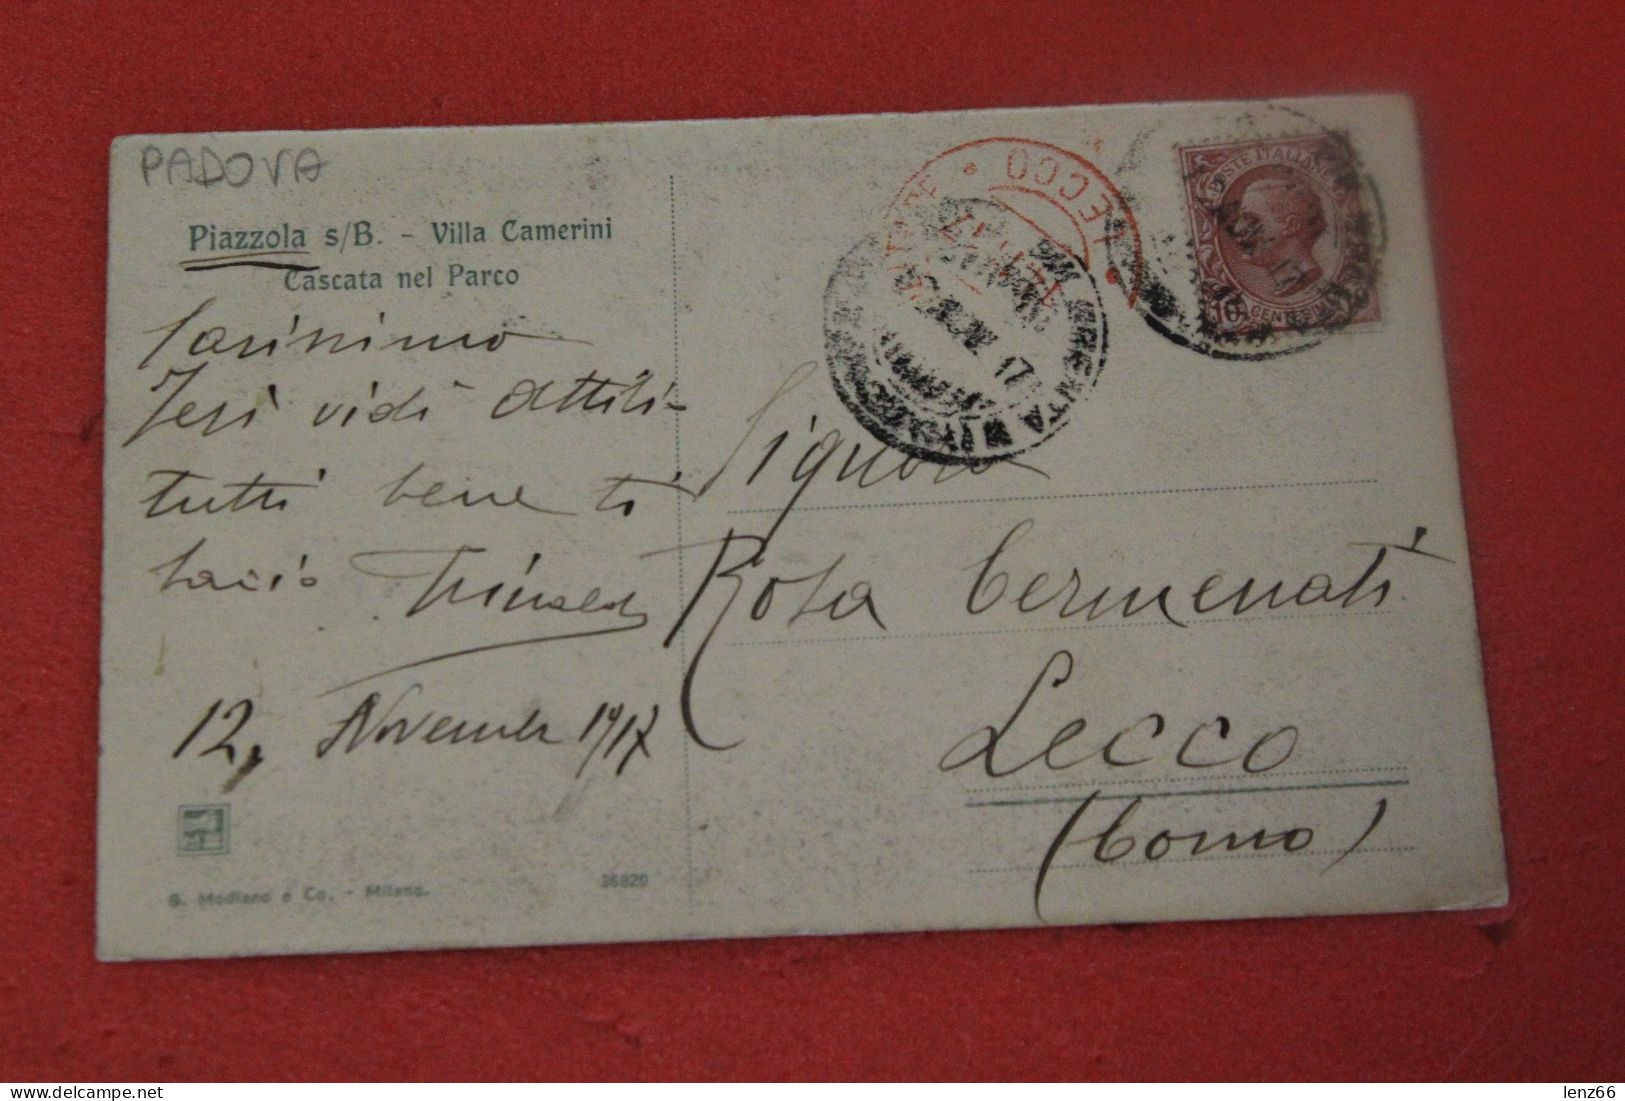 PADOVA
Piazzola s/B. - Villa Camerini
Cascata nel Parco
Carissimo
Ieri vidi Attili-
tutti bene ti
bacio
12, Novembre 1917
Signora
Rosa Cermenati
Lecco
(Como)
G. Modiano e Co. - Milano.
36820
LECCO
BRENTA
NOV. 17
POSTE ITALIANE
CENTESIMI 10
NOV. 17
lenz66